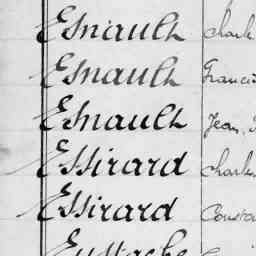 Esnault Charle
Esnault Franci
Esnault Jean,
Essirard Charles
Essirard Consta
Eustache